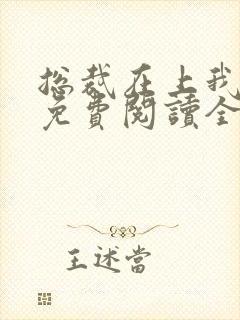 総裁在上我
免費閱讀全
王述當